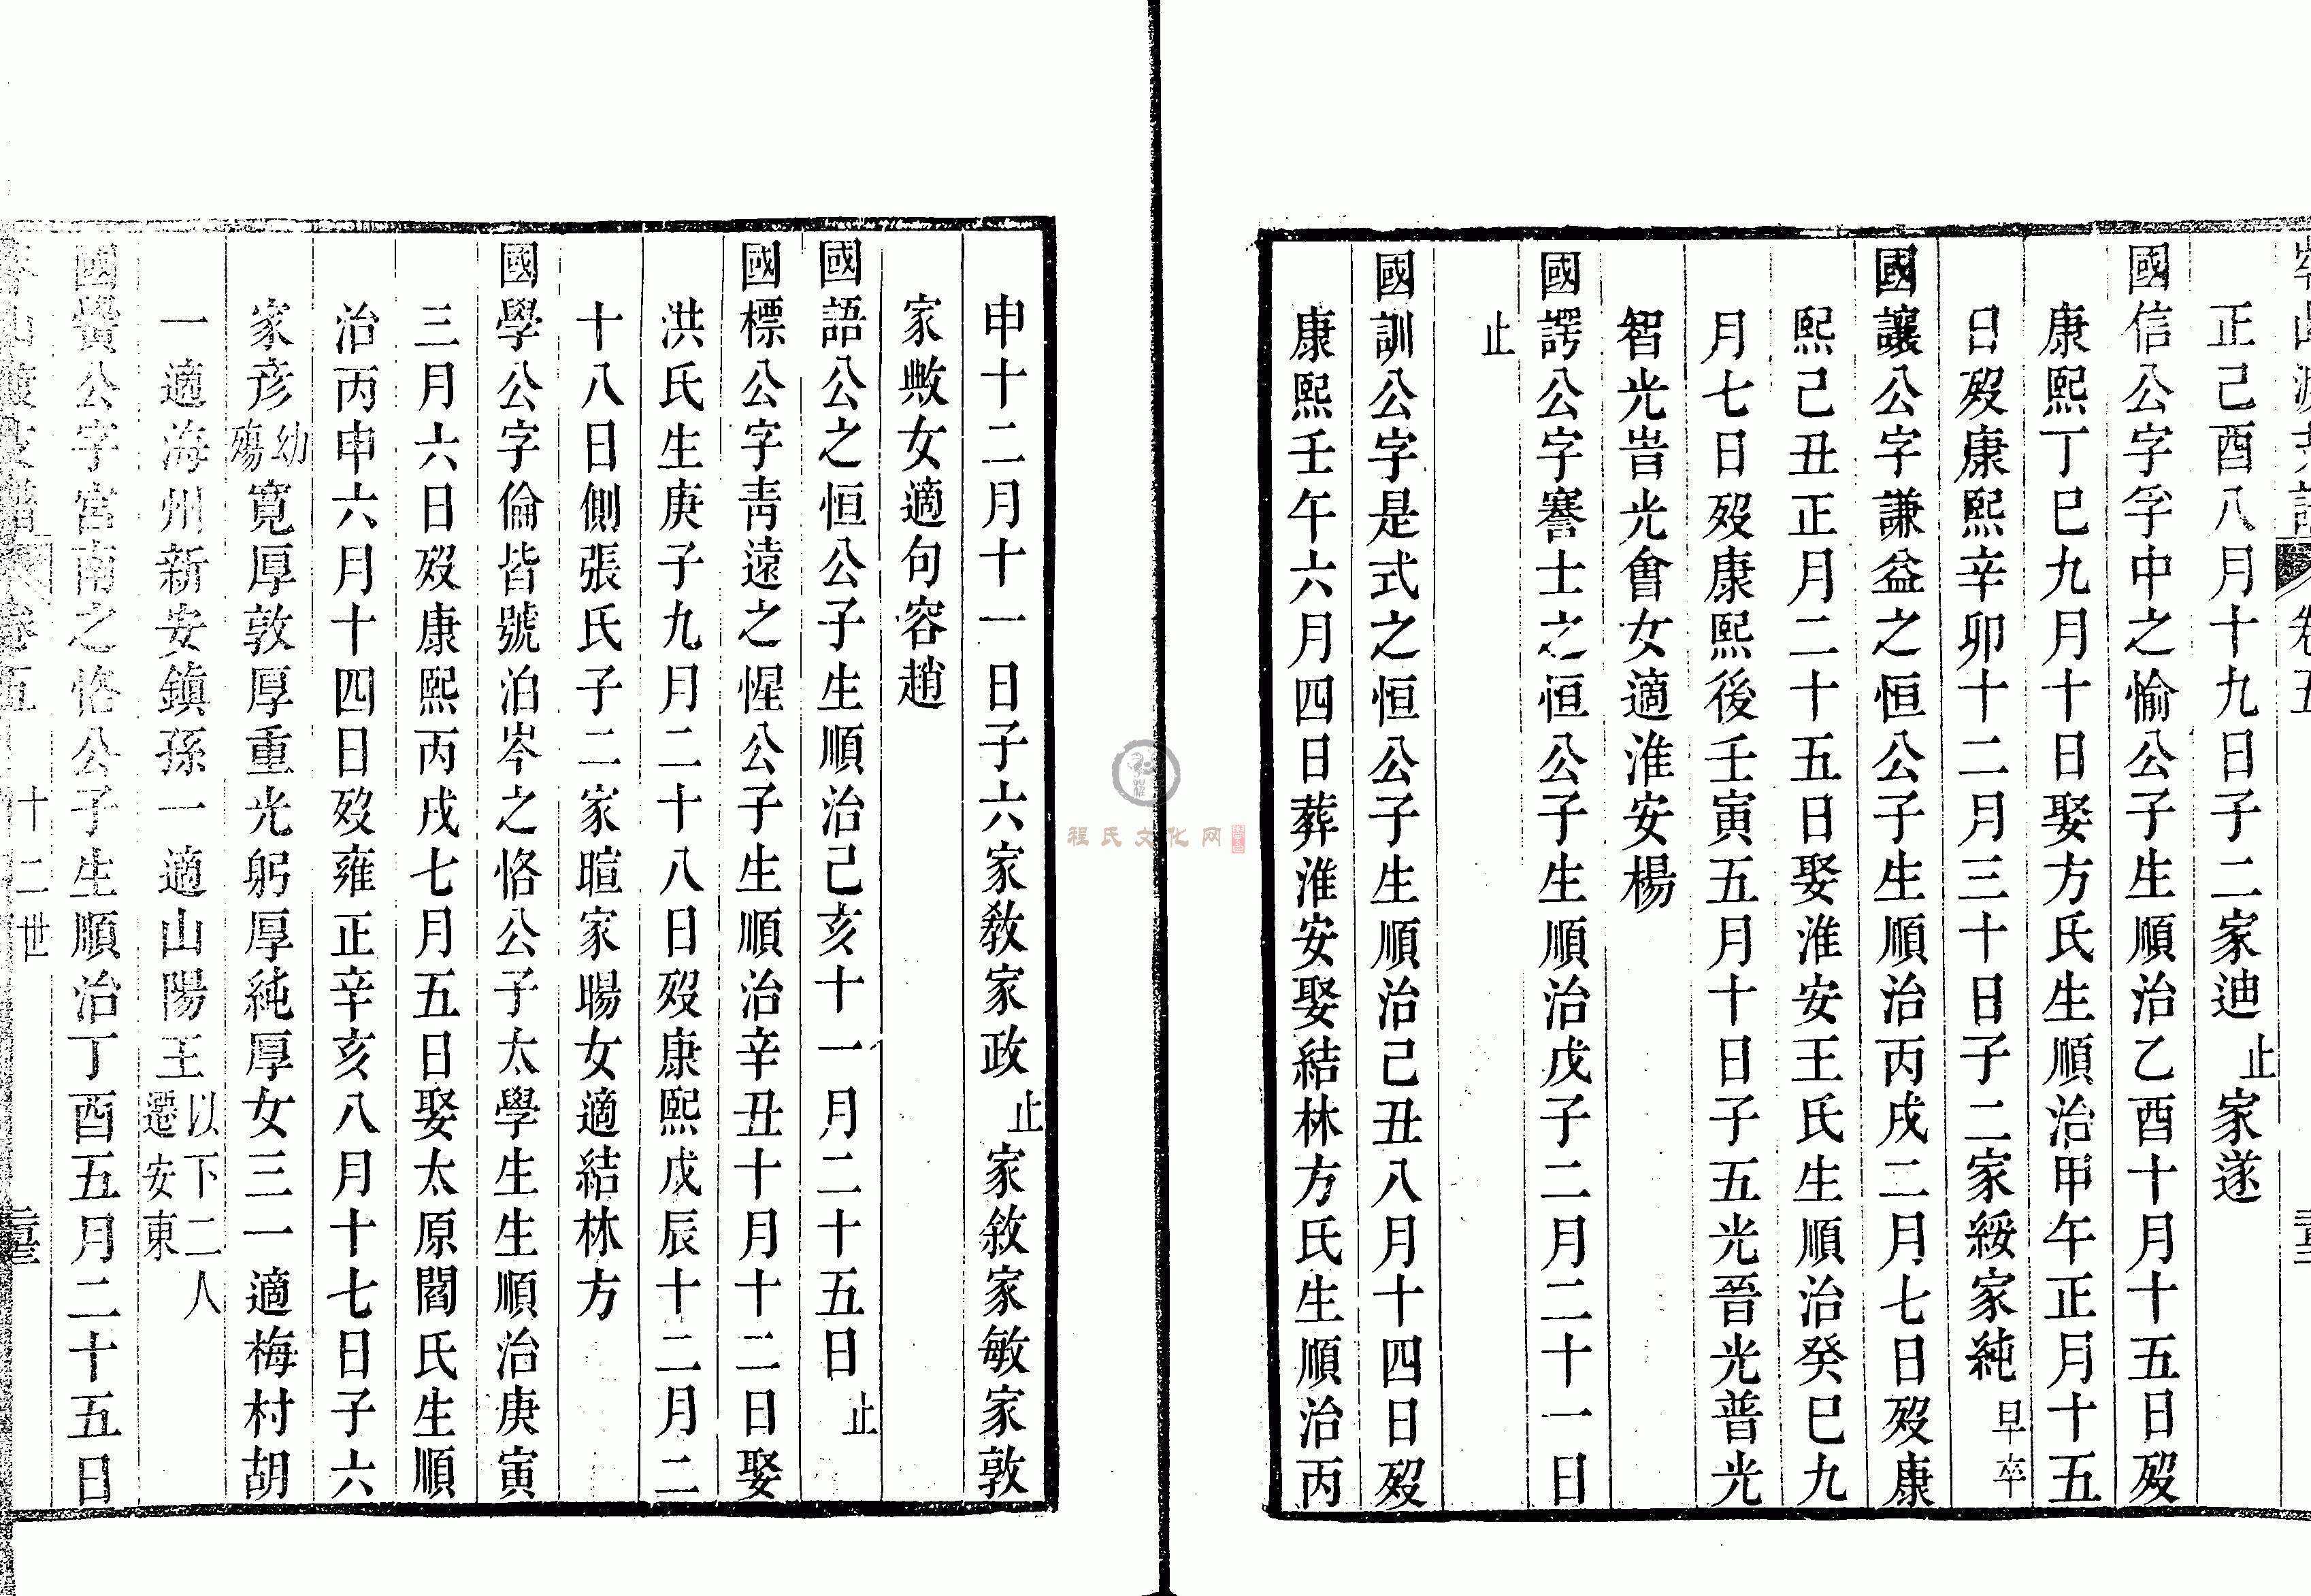 卷五
正己酉八月十九日子二家迪止家遂
國信公字孚中之愉公子生順治乙酉十月十五日歿
康熙丁巳九月十日娶方氏生順治甲午正月十五
日歿康熙辛卯十二月三十日子二家綏家純早卒
國讓公字謙益之恒公子生順治丙戌二月七日歿康
熙己丑正月二十五日娶淮安王氏生順治癸巳九
月七日歿康熙後壬寅五月十日子五光晉光普光
智光旹光會女適淮安楊
國諤公字謇士之恒公子生順治戊子二月二十一日
止
國訓公字是式之恒公子生順治己丑八月十四日歿
康熙壬午六月四日葬淮安娶結林方氏生順治丙
申十二月十一日子六家教家政止家敘家敏家敦
家斁女適句容趙
國語公之恒公子生順治己亥十一月二十五日止
國標公字靑遠之惺公子生順治辛丑十月十二日娶
洪氏生庚子九月二十八日歿康熙戊辰十二月二
十八日側張氏子二家暄家暘女適結林方
國學公字倫皆號泊岑之恪公子太學生生順治庚寅
三月六日歿康熙丙戌七月五日娶太原閻氏生順
治丙申六月十四日歿雍正辛亥八月十七日子六
家彦幼殤寬厚敦厚重光躬厚純厚女三一適梅村胡
一適海州新安鎮孫一適山陽王以下二人遷安東
國黌公字宮南之恪公子生順治丁酉五月二十五日
岑山渡支譜卷五 十二世